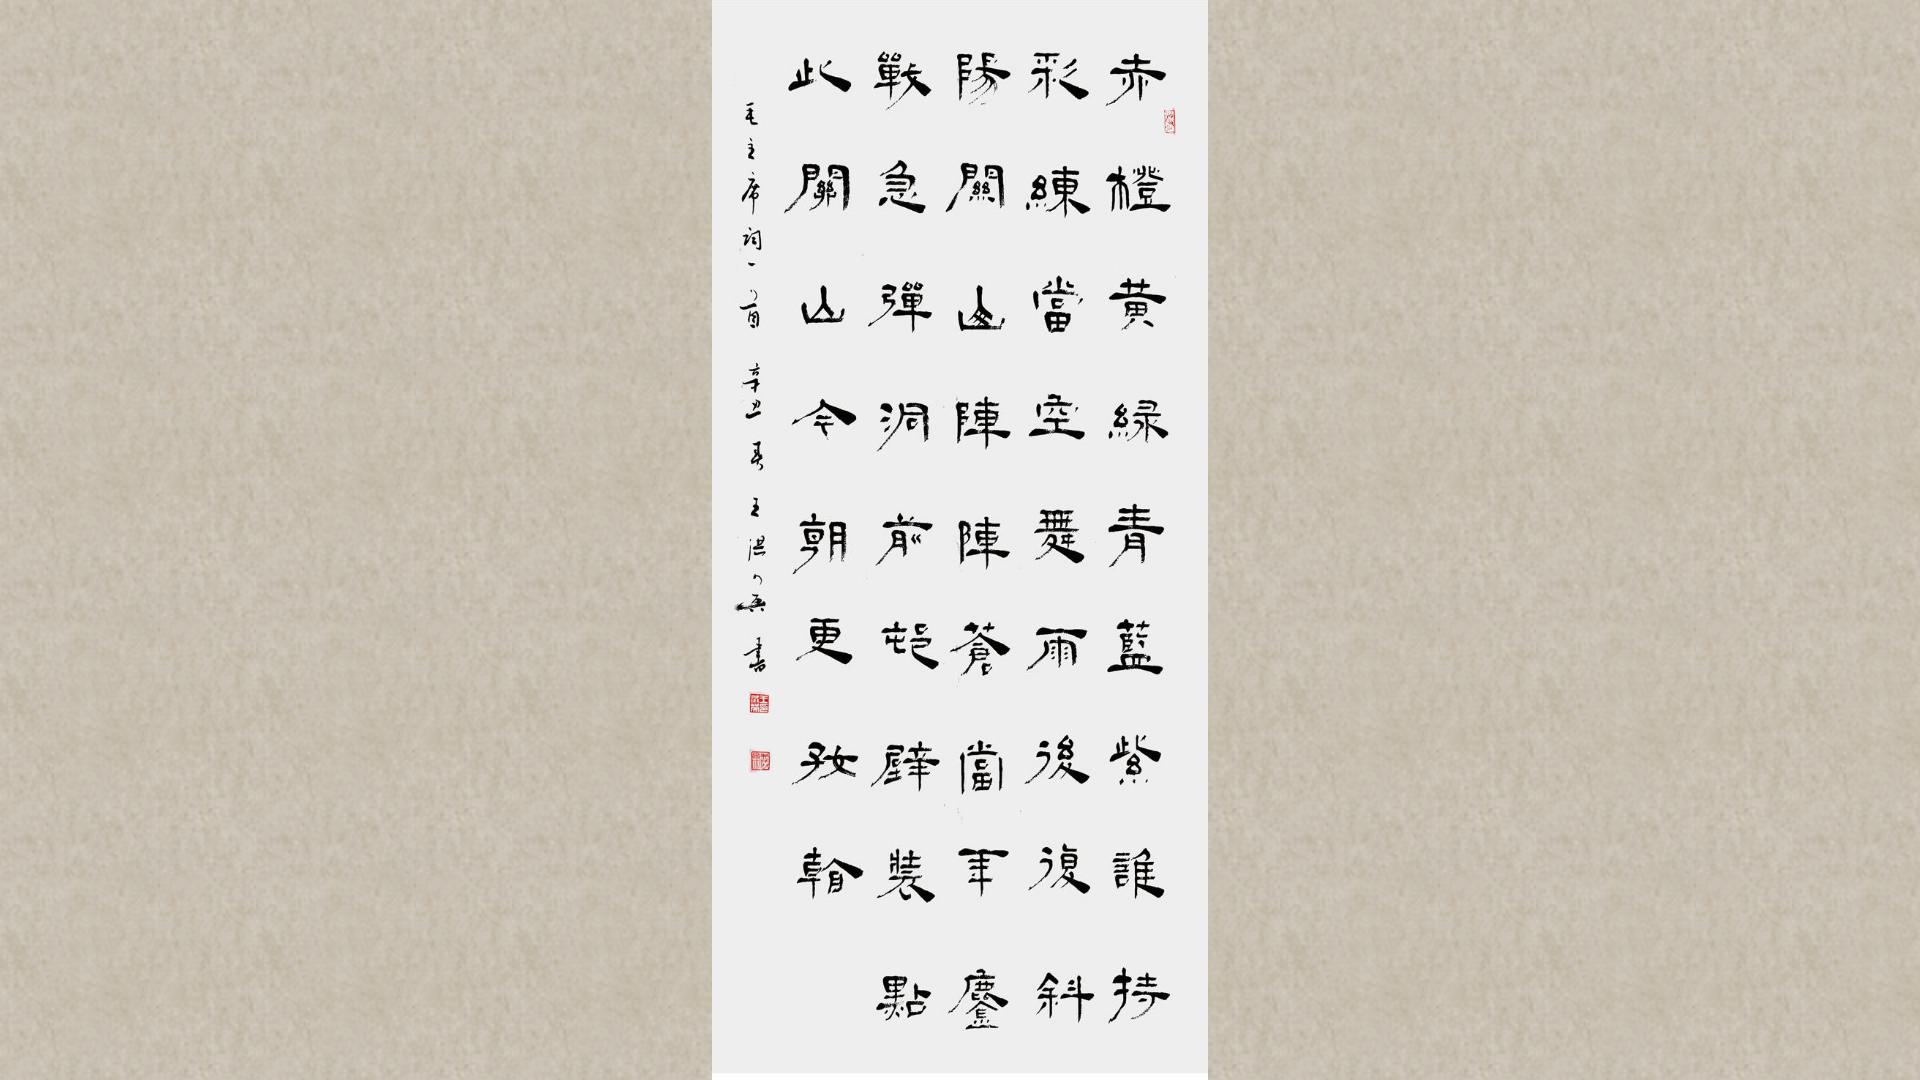 赤橙黄緑青藍紫誰持
彩練當空舞雨後復斜
陽關山陣陣蒼當年鏖
戰急彈洞前邨壁裝點
此關山今朝更好看
毛主席詞一首 辛丑春 王洪 書